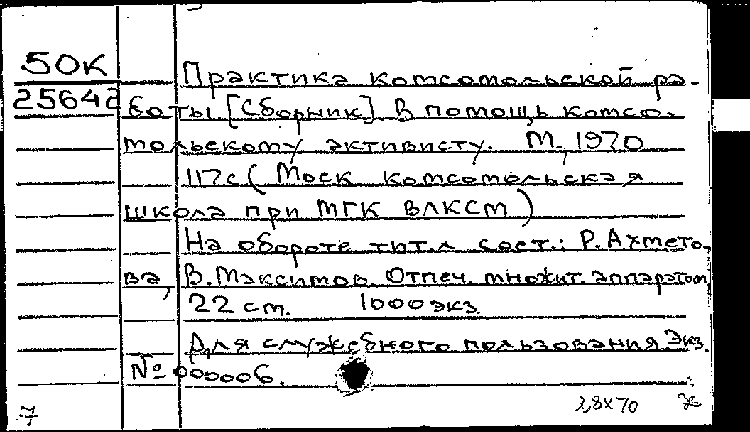 50К
Практика комсомольской ра-
25642
боты [Сборник] В помощь комсо-
мольскому активисту. М., 1970
117с (Моск комсомольская
школа при МГК ВЛКСМ)
На обороте тит.л сост.: Р. Ахмето-
ва, В. Максимов. Отпеч. множит. аппаратом
22 см. 1000 экз.
Для служебного пользования. Экз.
№ 000006.
7 2,8х70